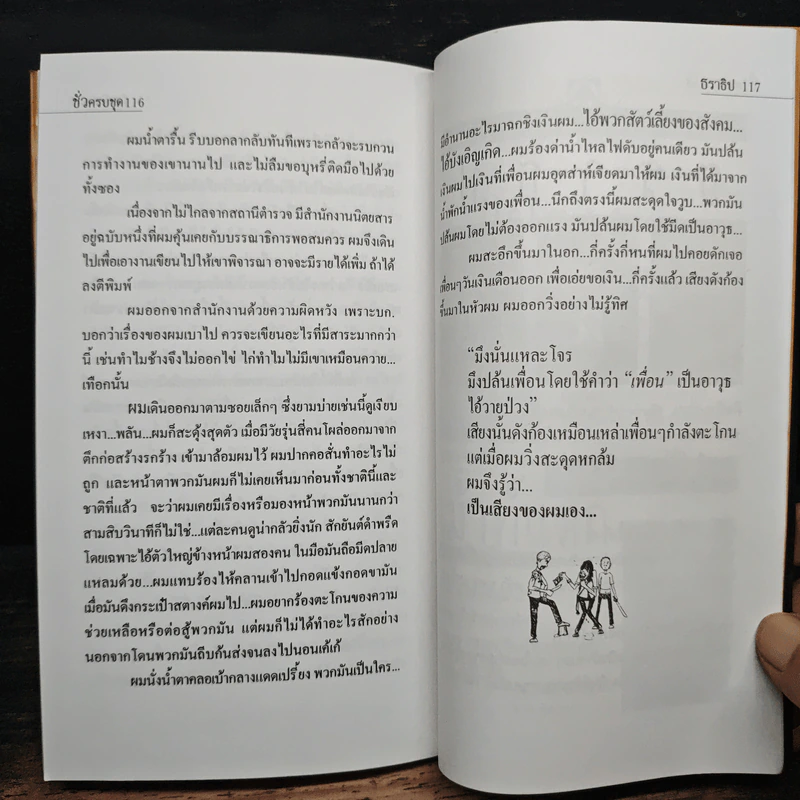 ชั่วครบชุด116
ผมน้ำตารื้น รีบบอกลากลับทันทีเพราะกลัวจะรบกวน
การทำงานของเขานานไป และไม่ลืมขอบุหรี่ติดมือไปด้วย
ทั้งซอง
เนื่องจากไม่ไกลจากสถานีตำรวจ มีสำนักงานนิตยสาร
อยู่ฉบับหนึ่งที่ผมคุ้นเคยกับบรรณาธิการพอสมควร ผมจึงเดิน
ไปเพื่อเอางานเขียนไปให้เขาพิจารณา อาจจะมีรายได้เพิ่ม ถ้าได้
ลงตีพิมพ์
ผมออกจากสำนักงานด้วยความผิดหวัง เพราะบก.
บอกว่าเรื่องของผมเบาไป ควรจะเขียนอะไรที่มีสาระมากกว่า
นี้ เช่นทำไมช้างจึงไม่ออกไข่ ไก่ทำไมไม่มีเขาเหมือนควาย...
เทือกนั้น
ผมเดินออกมาตามซอยเล็กๆ ซึ่งยามบ่ายเช่นนี้ดูเงียบ
เหงา...พลัน...ผมก็สะดุ้งสุดตัว เมื่อมีวัยรุ่นสี่คนโผล่ออกมาจาก
ตึกก่อสร้างรกร้าง เข้ามาล้อมผมไว้ ผมปากคอสั่นทำอะไรไม่
ถูก และหน้าตาพวกมันผมก็ไม่เคยเห็นมาก่อนทั้งชาตินี้และ
ชาติที่แล้ว จะว่าผมเคยมีเรื่องหรือมองหน้าพวกมันนานกว่า
สามสิบวินาทีก็ไม่ใช่...แต่ละคนดูน่ากลัวยิ่งนัก สักยันต์ดำพรืด
โดยเฉพาะไอ้ตัวใหญ่ข้างหน้าผมสองคน ในมือมันถือมีดปลาย
แหลมด้วย...ผมแทบร้องไห้คลานเข้าไปกอดแข้งกอดขามัน
เมื่อมันดึงกระเป๋าสตางค์ผมไป...ผมอยากร้องตะโกนของความ
ช่วยเหลือหรือต่อสู้พวกมัน แต่ผมก็ไม่ได้ทำอะไรสักอย่าง
นอกจากโดนพวกมันถีบก้นส่งจนลงไปนอนเค้เก้
ผมนั่งน้ำตาคลอเบ้ากลางแดดเปรี้ยง พวกมันเป็นใคร...
ธิราธิป 117
มีอำนานอะไรมาฉกชิงเงินผม...ไอ้พวกสัตว์เลี้ยงของสังคม...
ไอ้บังเอิญเกิด...ผมร้องด่าน้ำไหลไฟดับอยู่คนเดียว มันปล้น
เงินผมไปเงินที่เพื่อนผมอุตส่าห์เจียดมาให้ผม เงินที่ได้มาจาก
น้ำพักน้ำแรงของเพื่อน...นึกถึงตรงนี้ผมสะดุดใจวูบ...พวกมัน
ปล้นผมโดยไม่ต้องออกแรง มันปล้นผมโดยใช้มีดเป็นอาวุธ...
ผมสะอึกขึ้นมาในอก...กี่ครั้งกี่หนที่ผมไปคอยดักเจอ
เพื่อนๆวันเงินเดือนออก เพื่อเอ่ยขอเงิน...กี่ครั้งแล้ว เสียงดังก้อง
ขึ้นมาในหัวผม ผมออกวิ่งอย่างไม่รู้ทิศ
“มึงนั่นแหละโจร
มึงปล้นเพื่อนโดยใช้คำว่า “เพื่อน” เป็นอาวุธ
ไอ้วายป่วง”
เสียงนั้นดังก้องเหมือนเหล่าเพื่อนๆกำลังตะโกน
แต่เมื่อผมวิ่งสะดุดหกล้ม
ผมจึงรู้ว่า...
เป็นเสียงของผมเอง...